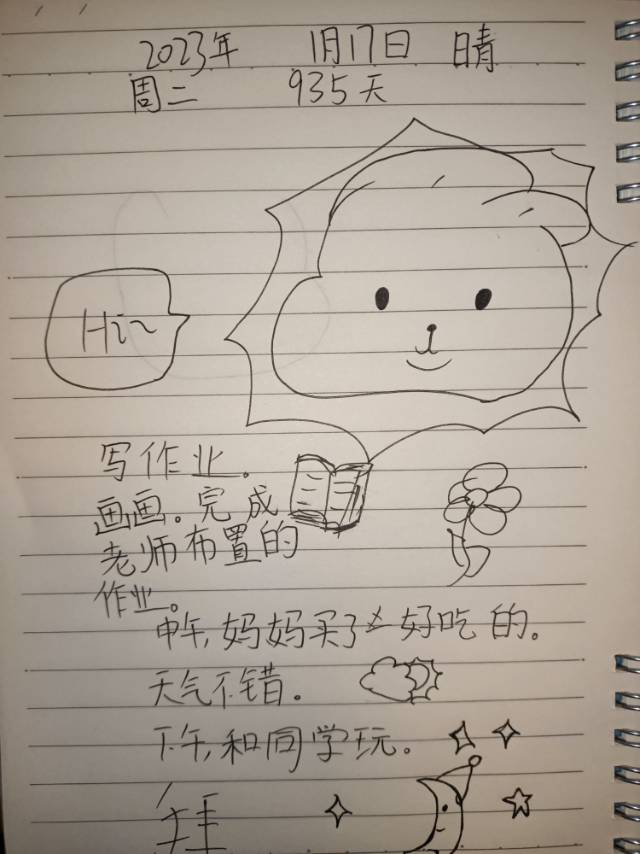 2023年 1月17日 晴
周二 935天
Hi~
写作业。
画画。完成
老师布置的
作业。
中午,妈妈买了好吃的。
天气不错。
下午,和同学玩。